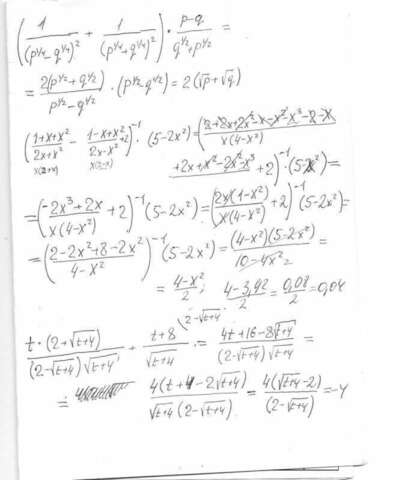 (1/(p^1/4 - q^1/4)^2 + 1/(p^1/4 + q^1/4)^2) · (p-q)/(q^1/2 + p^1/2) =
= 2(p^1/2 + q^1/2)/(p^1/2 - q^1/2) · (p^1/2 - q^1/2) = 2(√p + √q)
((1+x+x^2)/(2x+x^2) - (1-x+x^2)/(2x-x^2) + 2)^-1 · (5-2x^2) =
x(2+x) x(2-x) x(4-x^2)
+2x+x^2-2x^2-x^3 + 2)^-1 · (5-2x^2) =
= ((-2x^3+2x)/(x(4-x^2)) + 2)^-1 (5-2x^2) = (2x(1-x^2)/(x(4-x^2)) + 2)^-1 (5-2x^2) =
= ((2-2x^2+8-2x^2)/(4-x^2))^-1 (5-2x^2) = (4-x^2)(5-2x^2)/(10-4x^2) =
= (4-x^2)/2; (4-3,92)/2 = 0,08/2 = 0,04
(2-√t+4)
t·(2+√t+4)/((2-√t+4)√t+4) + (t+8)/√t+4 = (4t+16-8√t+4)/((2-√t+4)√t+4) =
= 4(t+4-2√t+4)/(√t+4(2-√t+4)) = 4(√t+4-2)/(2-√t+4) = -4